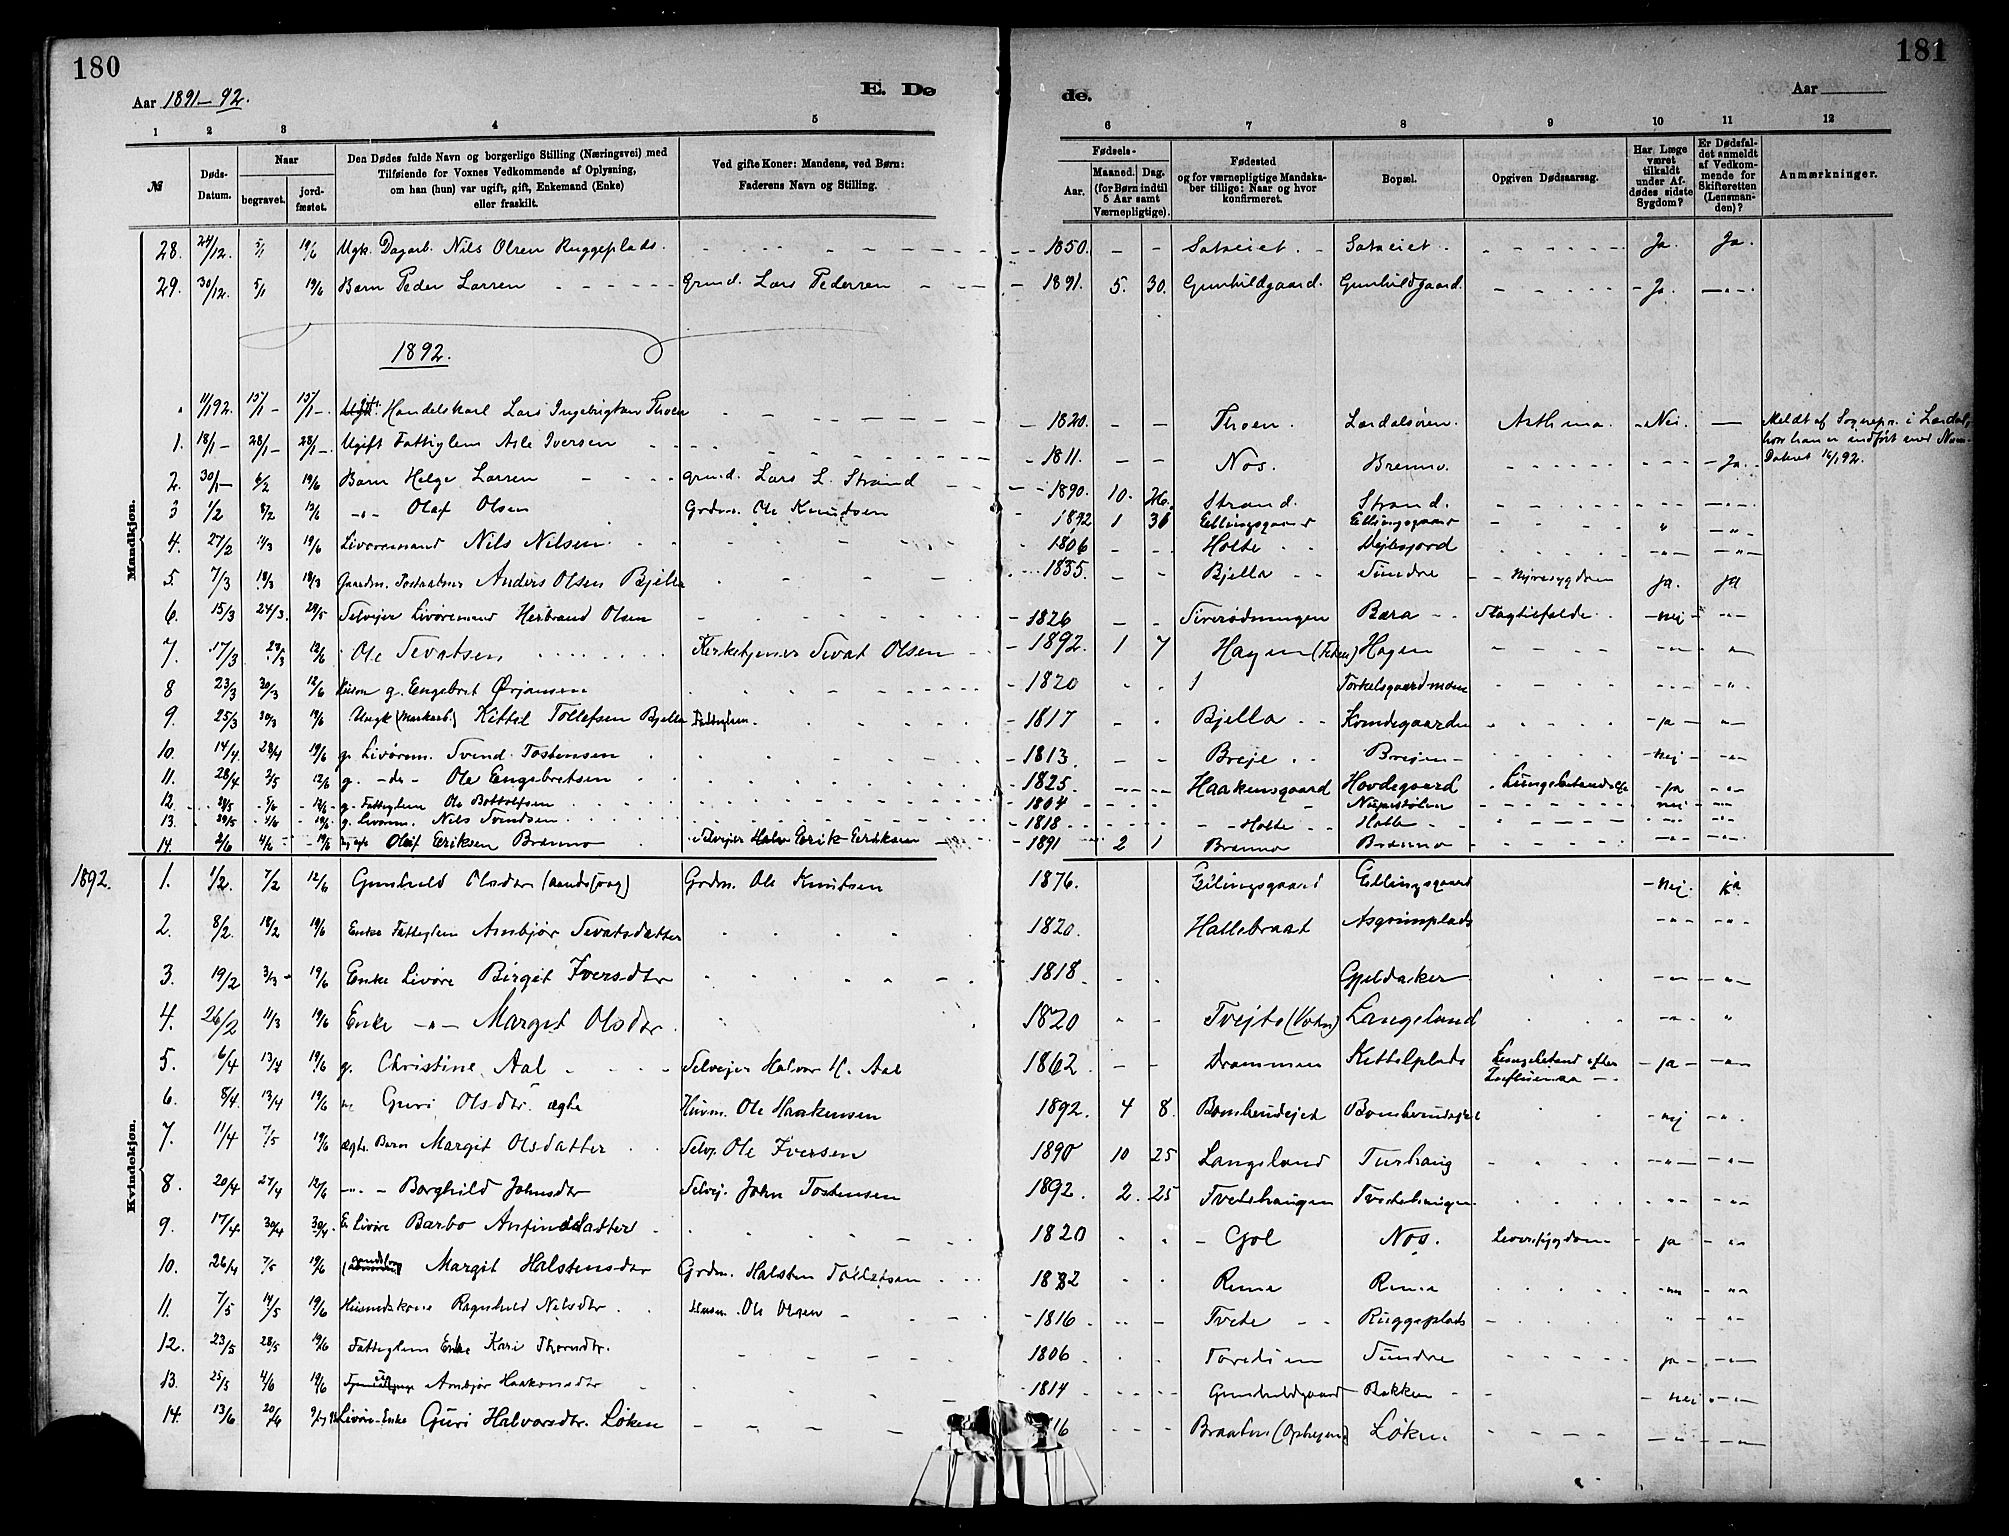 180
Aar 1891-92.
E. Dø
1 2 3 4 5
№ Døds-Datum. Naar begravet. jord-fæstet. Den Dødes fulde Navn og borgerlige Stilling (Næringsvei) med Tilføiende for Voxnes Vedkommende af Oplysning, om han (hun) var ugift, gift, Enkemand (Enke) eller fraskilt. Ved gifte Koner: Mandens, ved Børn: Faderens Navn og Stilling.
28. 24/12. 5/1 19/6 Ugk. Dagarb. Nils Olsen Ruggeplads.
29. 30/12. 5/1 19/6 Barn Peder Larsen Grmd. Lars Pedersen
1892.
11/1 92. 15/1 - 15/1 - Handelskarl Lars Ingebrigtsen Thoen
Mandkjøn.
1. 18/1 - 28/1 - 28/1 - Ugift Fattiglem Asle Iversen
2. 30/1 - 6/2 19/6 Barn Helge Larsen grmd. Lars L. Strand
3 1/2 8/2 12/6 -"- Olaf Olsen Grdm. Ole Knudsen
4. 27/2 11/3 19/6 Livøremand Nils Nilsen
5. 7/3 18/3 18/3 Gaardm. Postaabner Anders Olsen Bjella
6. 15/3 24/3. 29/5 Selvejer Livøremand Herbrand Olsen
7. 17/3 23/3 12/6 Ole Sevatsen Kirketjener Sevat Olsen
8 23/3 30/3 12/6 Husm g. Engebret Ørjansen
9. 25/3 30/3 19/6 Ungk (Markarb.) Kittil Tollefsen Bjella Fattiglem.
10. 14/4. 28/4 19/6 g. Livørem. Svend Tostensen
11. 28/4 3/5 12/6 g. -do- Ole Engebretsen
12. 5/6 12/6 g. Fattiglem Ole Bottolfsen
13. 29/5 4/6 19/6 g. Livørem. Nils Svendsen
14. 2/6 4/6 19/6 Oluf Eriksen Brænno Selvejer Erik Eriksen
1892.
Kvindekjøn.
1. 1/2. 7/2 12/6 Gunhild Olsdtr (aandssvag) Grdm. Ole Knutsen
2. 8/2. 18/2 19/6 Enke Fattiglem Ambjør Sevatsdatter
3. 19/2 3/3 - 19/6 Enke Livøre Birgit Iversdtr
4. 26/2 11/3 19/6 Enke -"- Margit Olsdtr.
5. 6/4 13/4 19/6 g. Christine Aal Selvejer Halvor H. Aal
6. 8/4. 13/4 19/6 Guri Olsdtr. ægte Husm. Ole Haakensen
7. 11/4 7/5 19/6 ægte. Barn Margit Olsdatter Selvej. Ole Iversen
8. 20/4 27/4 12/6 -"- Borghild Johnsdtr Selvej. John Tostensen
9. 17/4 30/4 30/4. E. Livøre Barbo Anfindsdatter
10. 26/4 7/5 19/6 Margit Halstensdtr Grdm. Halsten Tollefsen
11. 7/5 14/5 19/6 Husmdskone Ragnhild Nilsdtr. Husm. Ole Olsen
12. 23/5 28/5 19/6 Fattiglem Enke Kari Thorsdtr.
13. 25/5 4/6 19/6 Ambjør Haakonsdtr
14. 13/6 20/6 Livøre-Enke Guri Halvorsdtr. Løken
181
de.
Aar
6 7 8 9 10 11 12
Fødsels- Aar. Maaned. Dag. (for Børn indtil 5 Aar samt Værnepligtige). Fødested og for værnepligtige Mandskaber tillige: Naar og hvor konfirmeret. Bopæl. Opgiven Dødsaarsag. Har Læge været tilkaldt under Afdødes sidste Sygdom? Er Dødsfaldet anmeldt af Vedkommende for Skifteretten (Lensmanden)? Anmærkninger.
1850. Sataeiet. Sataeiet. Ja. Ja.
1891. 5. 30. Gunhildgaard. Gunhildgaard. Ja. -"-
1820. Thoen. Lærdalsøren. Asthma. Nei. Meldt af Sognepr. i Lærdal,
hvor han er indført med Num.
Dateret 16/1 92.
1811. Nos. Brenno. Ja.
1890. 10. Strand. Strand.
1892 1 Ellingsgaard Ellingsgaard
1806 Holte
1835. Bjella Sundre Nyresygdom ja. ja
1826 Bæra Slagtilfælde nej -"-
1892. 1 7 Hagen Hagen
1820 Torkelsgaardmoen
1817 Bjella ja -"-
1813. Breje Brejen nej -"-
1825. Haakensgaard Hovdegaard ja -"-
1804 nej -"-
1818 Holte Holte
1891 2 1 Brænno Brænno
1876. Ellingsgaard Ellingsgaard nej. ja.
1820. Hallebraat Asgrimplads
1818. Gjeldaker
1820 Tvejto Langeland
1862. Drammen Kittelplads Lungebetænd efter
Influensa ja -"-
1892. 4 8. nej -"-
1890 10 25 Langeland Turhaug
1892. 2. 25 Tvetehaugen Tvetehaugen
1820 Gol Nos. Leversygdom ja -"-
Reme Reme
1816 Tveto Ruggeplads
1806 Sundre ja -"-
1814 Gunhildgaard Bakken nei -"-
Braaten Løken